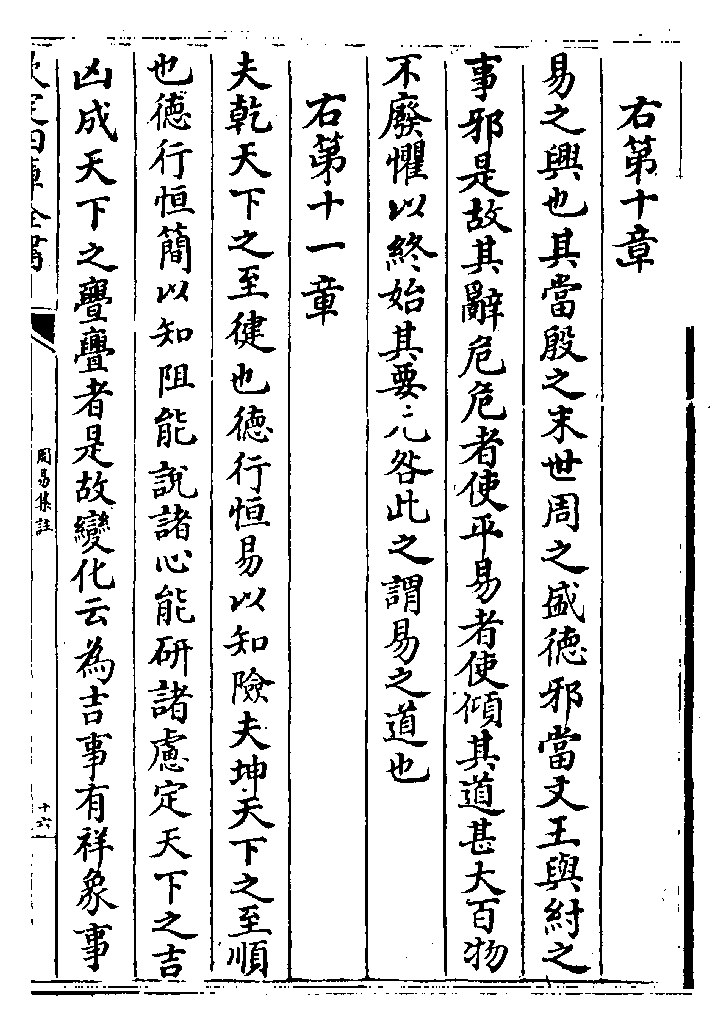 右第十章
易之興也其當殷之末世周之盛德邪當文王與紂之
事邪是故其辭危危者使平易者使傾其道甚大百物
不廢懼以終始其要无咎此之謂易之道也
右第十一章
夫乾天下之至健也德行恒易以知險夫坤天下之至順
也德行恒簡以知阻能說諸心能研諸慮定天下之吉
凶成天下之亹亹者是故變化云為吉事有祥象事
欽定四庫全書
周易集註
十六